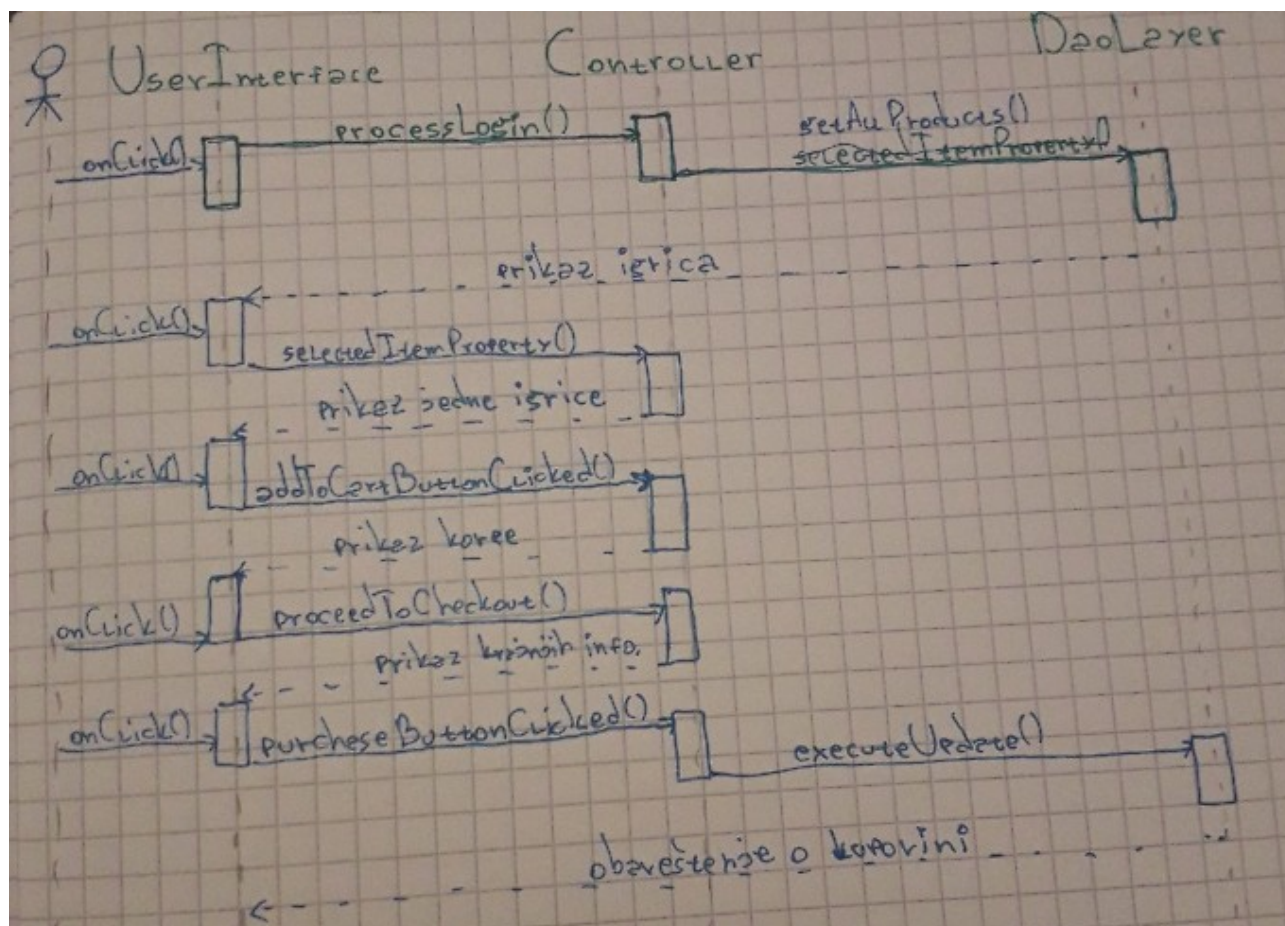 UserInterface
Controller
DaoLayer
onClick()
processLogin()
getAllProducts()
selectedItemProperty()
prikaz igrica
onClick()
selectedItemProperty()
prikaz jedne igrice
onClick()
addToCartButtonClicked()
prikaz korpe
onClick()
proceedToCheckout()
prikaz krajnjih info.
onClick()
purcheseButtonClicked()
executeUpdate()
obaveštenje o kupovini